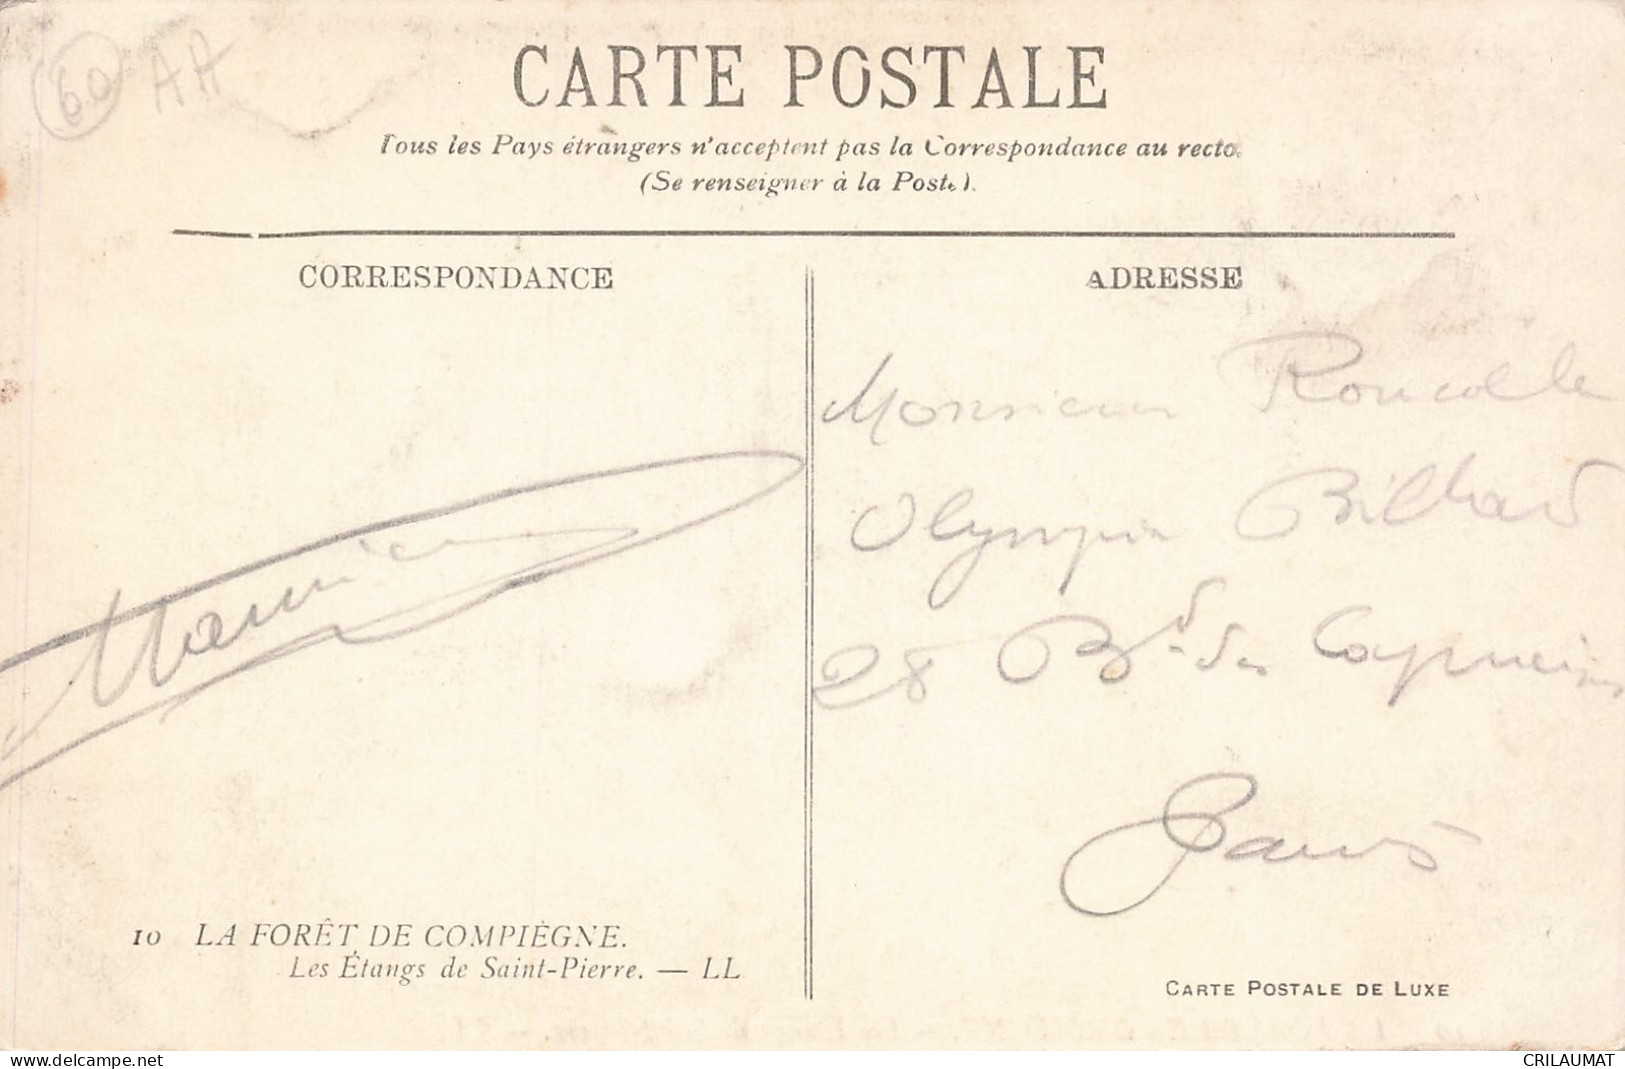 60 AA
CARTE POSTALE
Tous les Pays étrangers n'acceptent pas la Correspondance au recto.
(Se renseigner à la Poste).
CORRESPONDANCE
ADRESSE
Monsieur
Olympia Billard
28 Bd des Capucines
Paris
10 LA FORÊT DE COMPIÈGNE.
Les Étangs de Saint-Pierre. — LL
CARTE POSTALE DE LUXE
delcampe.net
CRILAUMAT